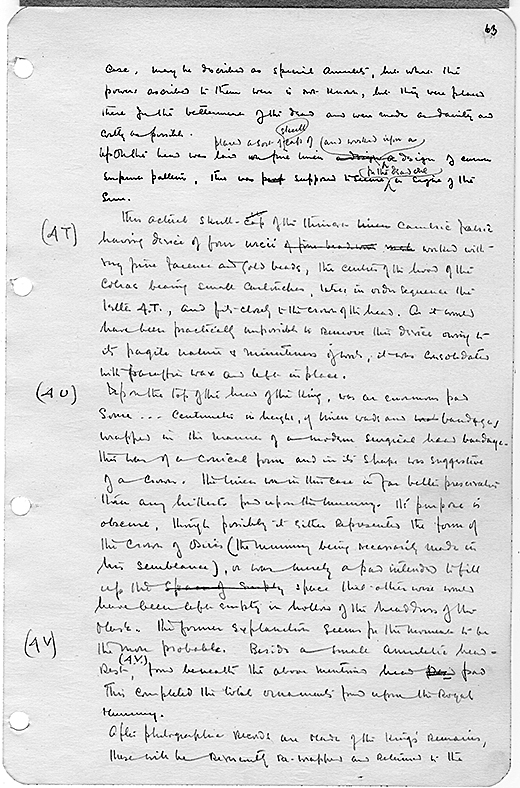 63
case, may be described as special amulets, but what the
powers ascribed to them were is not known, but they were placed
there for the betterment of the dead and were made as dainty and
costly as possible.
placed a sort of skull cap of (and worked upon a
Upon the head was laid fine linen design of
pattern, this was supposed to for the dead one in of the
Sun.
(4T) This actual skull-cap of the thinnest linen cambric fabric
having device of four uraei worked with
very fine faience and gold beads, the centres of the hood of the
Cobras bearing small cartouches, takes in order sequence the
letter 4.T., and fits closely to the crown of the head. As it would
have been practically impossible to remove this device owing to
its fragile nature & minuteness of work, it was consolidated
with paraffin wax and left in place.
(4U) Upon the top of the head of the King, was an enormous pad
Some ... Centimetres in height, of linen wads and bandages,
wrapped in the manner of a modern surgical head bandage.
This was of a conical form and in its shape was suggestive
of a Crown. The linen was in this case in far better preservation
than any hitherto found upon the mummy. Its purpose is
obscure, though possibly it either represented the form of
the Crown of Osiris (the mummy being necessarily made in
his semblance), or was merely a pad intended to fill
up the space of empty space that otherwise would
have been left empty in hollow of the headdress of the
Mask. The former explanation seems for the moment to be
(4V) the more probable. Beside a small amuletic head-
Rest, (4V) found beneath the above mentioned head pad
This completed the total ornaments found upon the Royal
Mummy.
After photographic records are made of the King's remains,
these will be reverently re-wrapped and returned to the